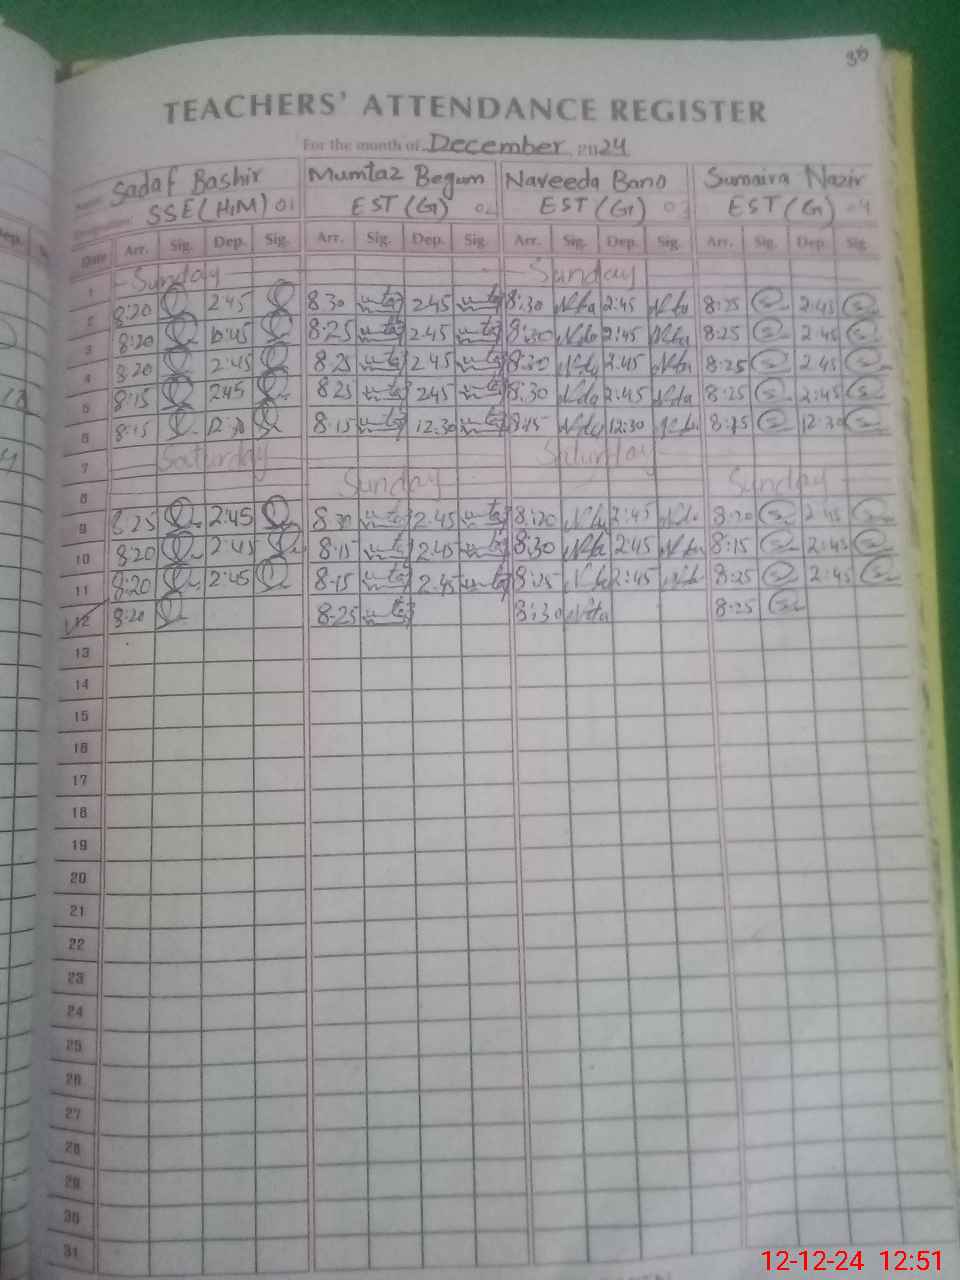 36
TEACHERS' ATTENDANCE REGISTER
For the month of December 2024
Sadaf Bashir Mumtaz Begum Naveeda Bano Sumaira Nazir
SSE (H/M) 01 EST (G) 02 EST (G) 03 EST (G) 04
Date Arr. Sig. Dep. Sig. Arr. Sig. Dep. Sig. Arr. Sig. Dep. Sig. Arr. Sig. Dep. Sig.
1 Sunday Sunday
2 8:20 2:45 8:30 2:45 8:30 2:45 8:25 2:45
3 8:20 2:45 8:25 2:45 8:30 2:45 8:25 2:45
4 8:20 2:45 8:25 2:45 8:30 2:45 8:25 2:45
5 8:15 2:45 8:25 2:45 8:30 2:45 8:25 2:45
6 8:15 12:30 8:15 12:30 8:15 12:30 8:25 12:30
7 Saturday Saturday
8 Sunday Sunday
9 8:25 2:45 8:30 2:45 8:20 2:45 8:20 2:45
10 8:20 2:45 8:15 2:45 8:30 2:45 8:15 2:45
11 8:20 2:45 8:15 2:45 8:25 2:45 8:25 2:45
12 8:20 8:25 8:30 8:25
13
14
15
16
17
18
19
20
21
22
23
24
25
26
27
28
29
30
31
12-12-24 12:51